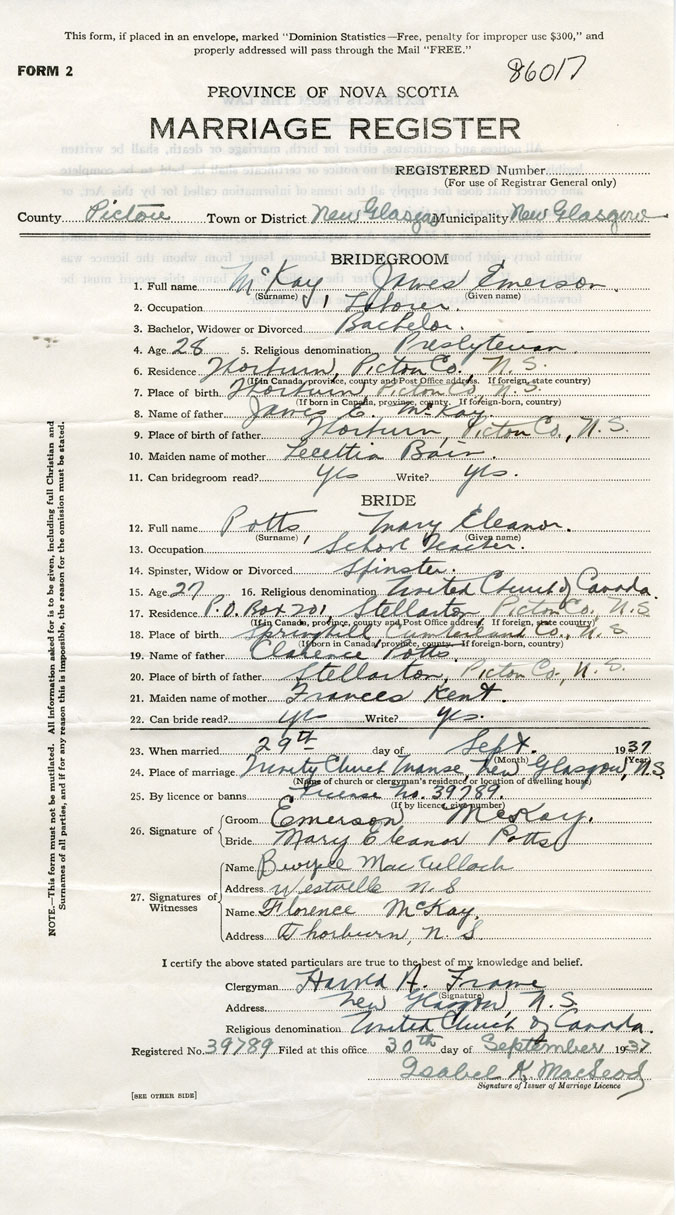 This form, if placed in an envelope, marked "Dominion Statistics—Free, penalty for improper use $300," and
properly addressed will pass through the Mail "FREE."
FORM 2
86017
PROVINCE OF NOVA SCOTIA
MARRIAGE REGISTER
REGISTERED Number
(For use of Registrar General only)
County Pictou Town or District New Glasgow Municipality New Glasgow
BRIDEGROOM
1. Full name McKay, James Emerson.
(Surname) (Given name)
2. Occupation Laborer.
3. Bachelor, Widower or Divorced Bachelor.
4. Age 28 5. Religious denomination Presbyterian
6. Residence Thorburn, Pictou Co., N.S.
(If in Canada, province, county and Post Office address. If foreign, state country)
7. Place of birth Thorburn, Pictou Co., N.S.
(If born in Canada, province, county. If foreign-born, country)
8. Name of father James E. McKay.
9. Place of birth of father Thorburn, Pictou Co., N.S.
10. Maiden name of mother Bain.
11. Can bridegroom read? yes Write? yes.
BRIDE
12. Full name Potts, Mary Eleanor.
(Surname) (Given name)
13. Occupation School Teacher.
14. Spinster, Widow or Divorced Spinster.
15. Age 27 16. Religious denomination United Church of Canada.
17. Residence P.O. Box 201, Stellarton Pictou Co., N.S.
(If in Canada, province, county and Post Office address. If foreign, state country)
18. Place of birth Springhill Cumberland Co., N.S.
(If born in Canada, province, county. If foreign-born, country)
19. Name of father Clarence Potts.
20. Place of birth of father Stellarton, Pictou Co., N.S.
21. Maiden name of mother Frances Kent.
22. Can bride read? yes Write? yes.
23. When married 29th day of Sept. 1937
(Month) (Year)
24. Place of marriage Trinity Church Manse, New Glasgow, N.S.
(Name of church or clergyman's residence or location of dwelling house)
25. By licence or banns License No. 39789.
(If by licence, give number)
26. Signature of
Groom Emerson McKay.
Bride Mary Eleanor Potts
27. Signatures of Witnesses
Name MacCulloch
Address Westville N.S
Name Florence McKay.
Address Thorburn, N.S.
I certify the above stated particulars are true to the best of my knowledge and belief.
Clergyman Harold A. Frame
(Signature)
Address New Glasgow, N.S.
Religious denomination United Church of Canada.
Registered No. 39789 Filed at this office 30th day of September 1937
Isabel K. MacLeod
Signature of Issuer of Marriage Licence
[SEE OTHER SIDE]
NOTE.—This form must not be mutilated. All information asked for is to be given, including full Christian and
Surnames of all parties, and if for any reason this is impossible, the reason for the omission must be stated.